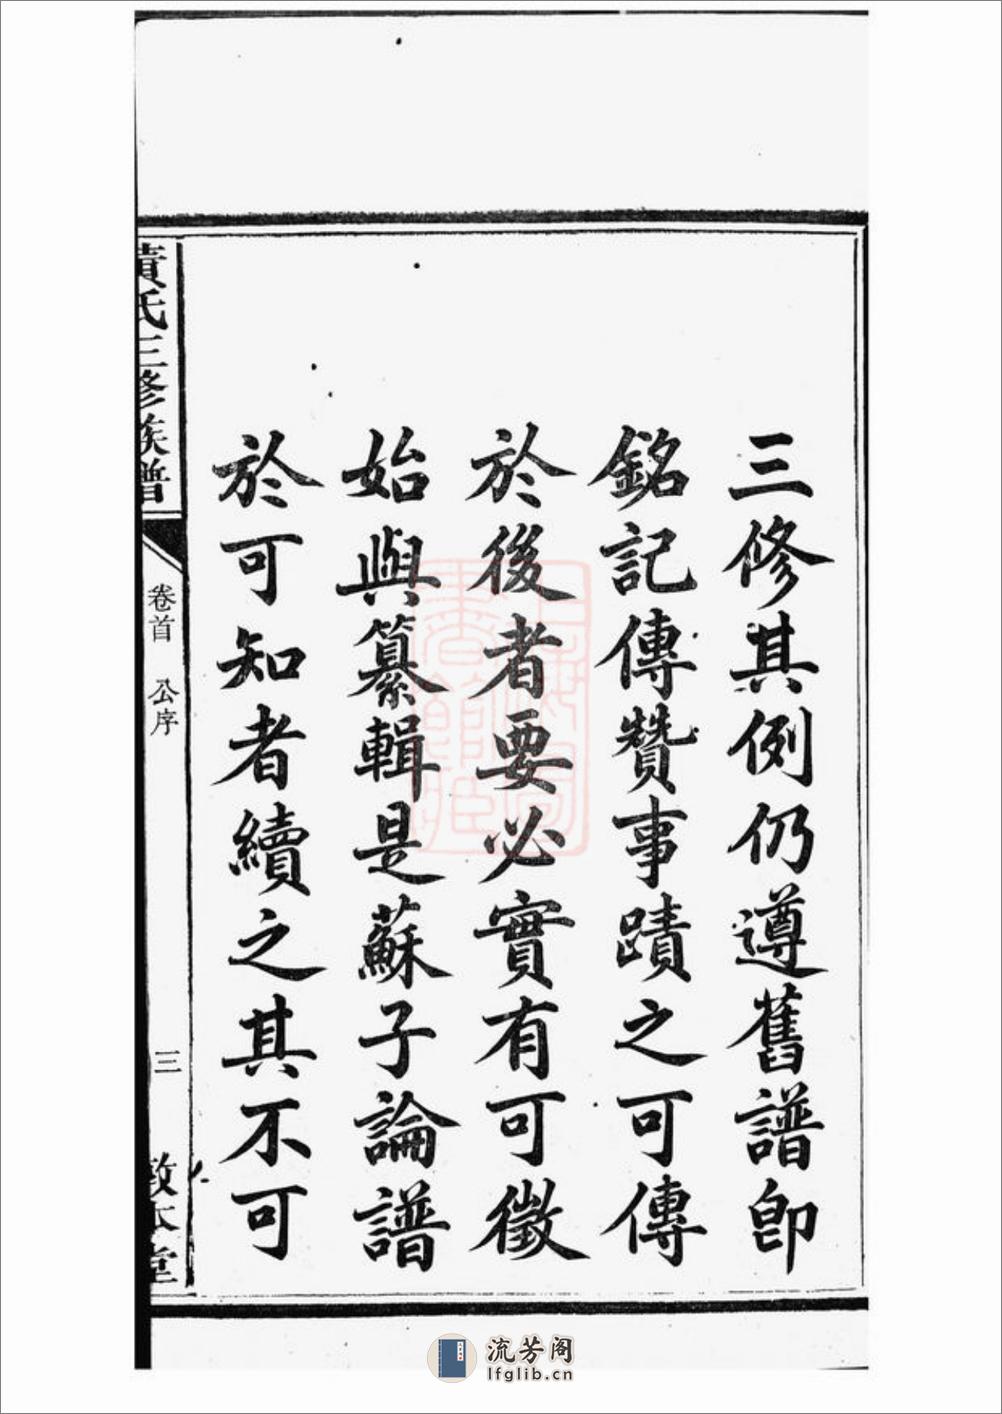 三修其例仍遵舊譜即
銘記傳贊事蹟之可傳
於後者要必實有可徵
始與纂輯是蘇子論譜
於可知者續之其不可
黃氏三修族譜
卷首 公序
三
敦本堂
流芳阁
lfglib.cn